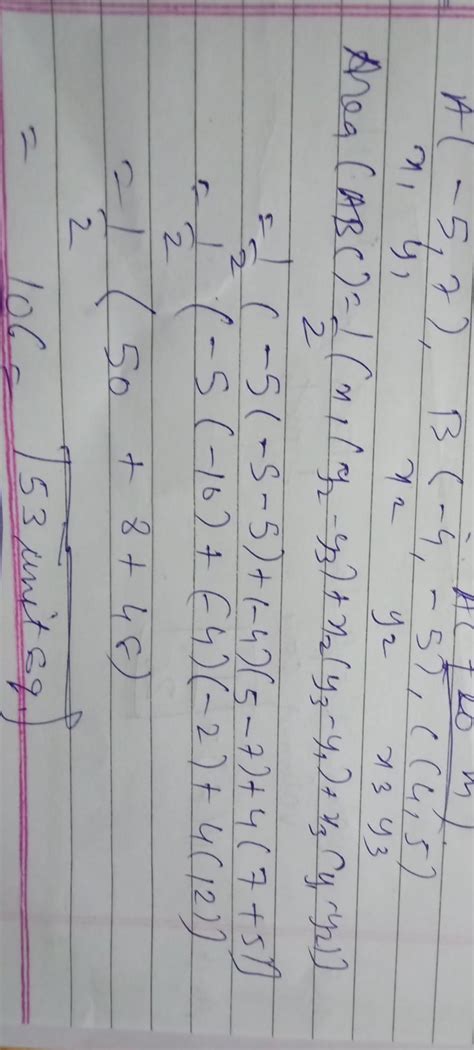 A(-5, 7), B(-4, -5), C(4, 5)
x₁ y₁ x₂ y₂ x₃ y₃
Area (ABC) = 1/2 (x₁(y₂-y₃)+x₂(y₃-y₁)+x₃(y₁-y₂))
= 1/2 (-5(-5-5)+(-4)(5-7)+4(7+5))
= 1/2 (-5(-10)+(-4)(-2)+4(12))
= 1/2 (50 + 8 + 48)
= 106 = 53 unit sq.